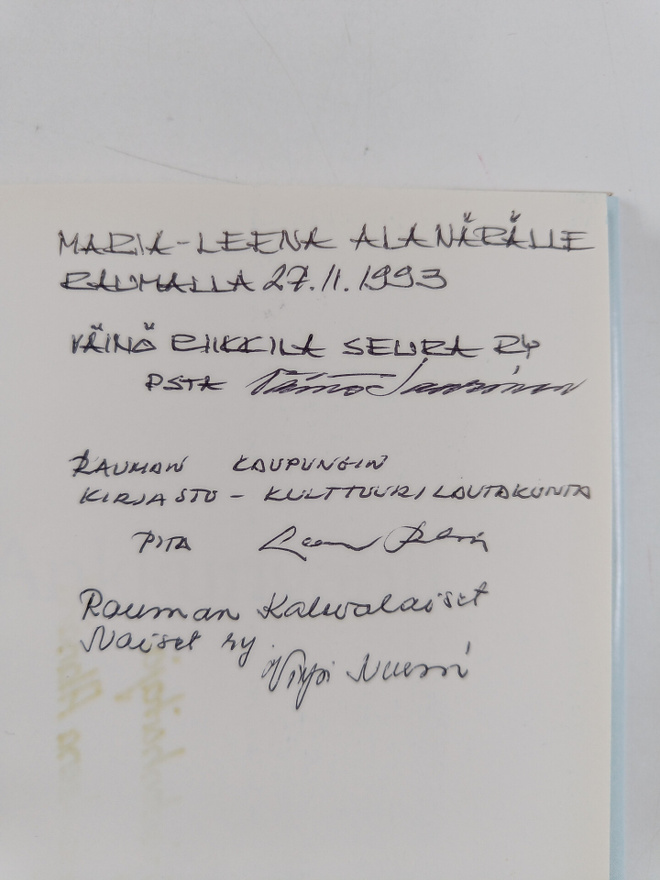 MARIA-LEENA ALANÄRÄLLE
RAUMALLA 27.11.1993
VÄINÖ RIIKKILÄ SEURA RY
PSTA Väinö
RAUMAN KAUPUNGIN
KIRJASTO- KULTTUURILAUTAKUNTA
PITA
Rauman Kalevalaiset
Naiset ry.
Virpi Nurmi